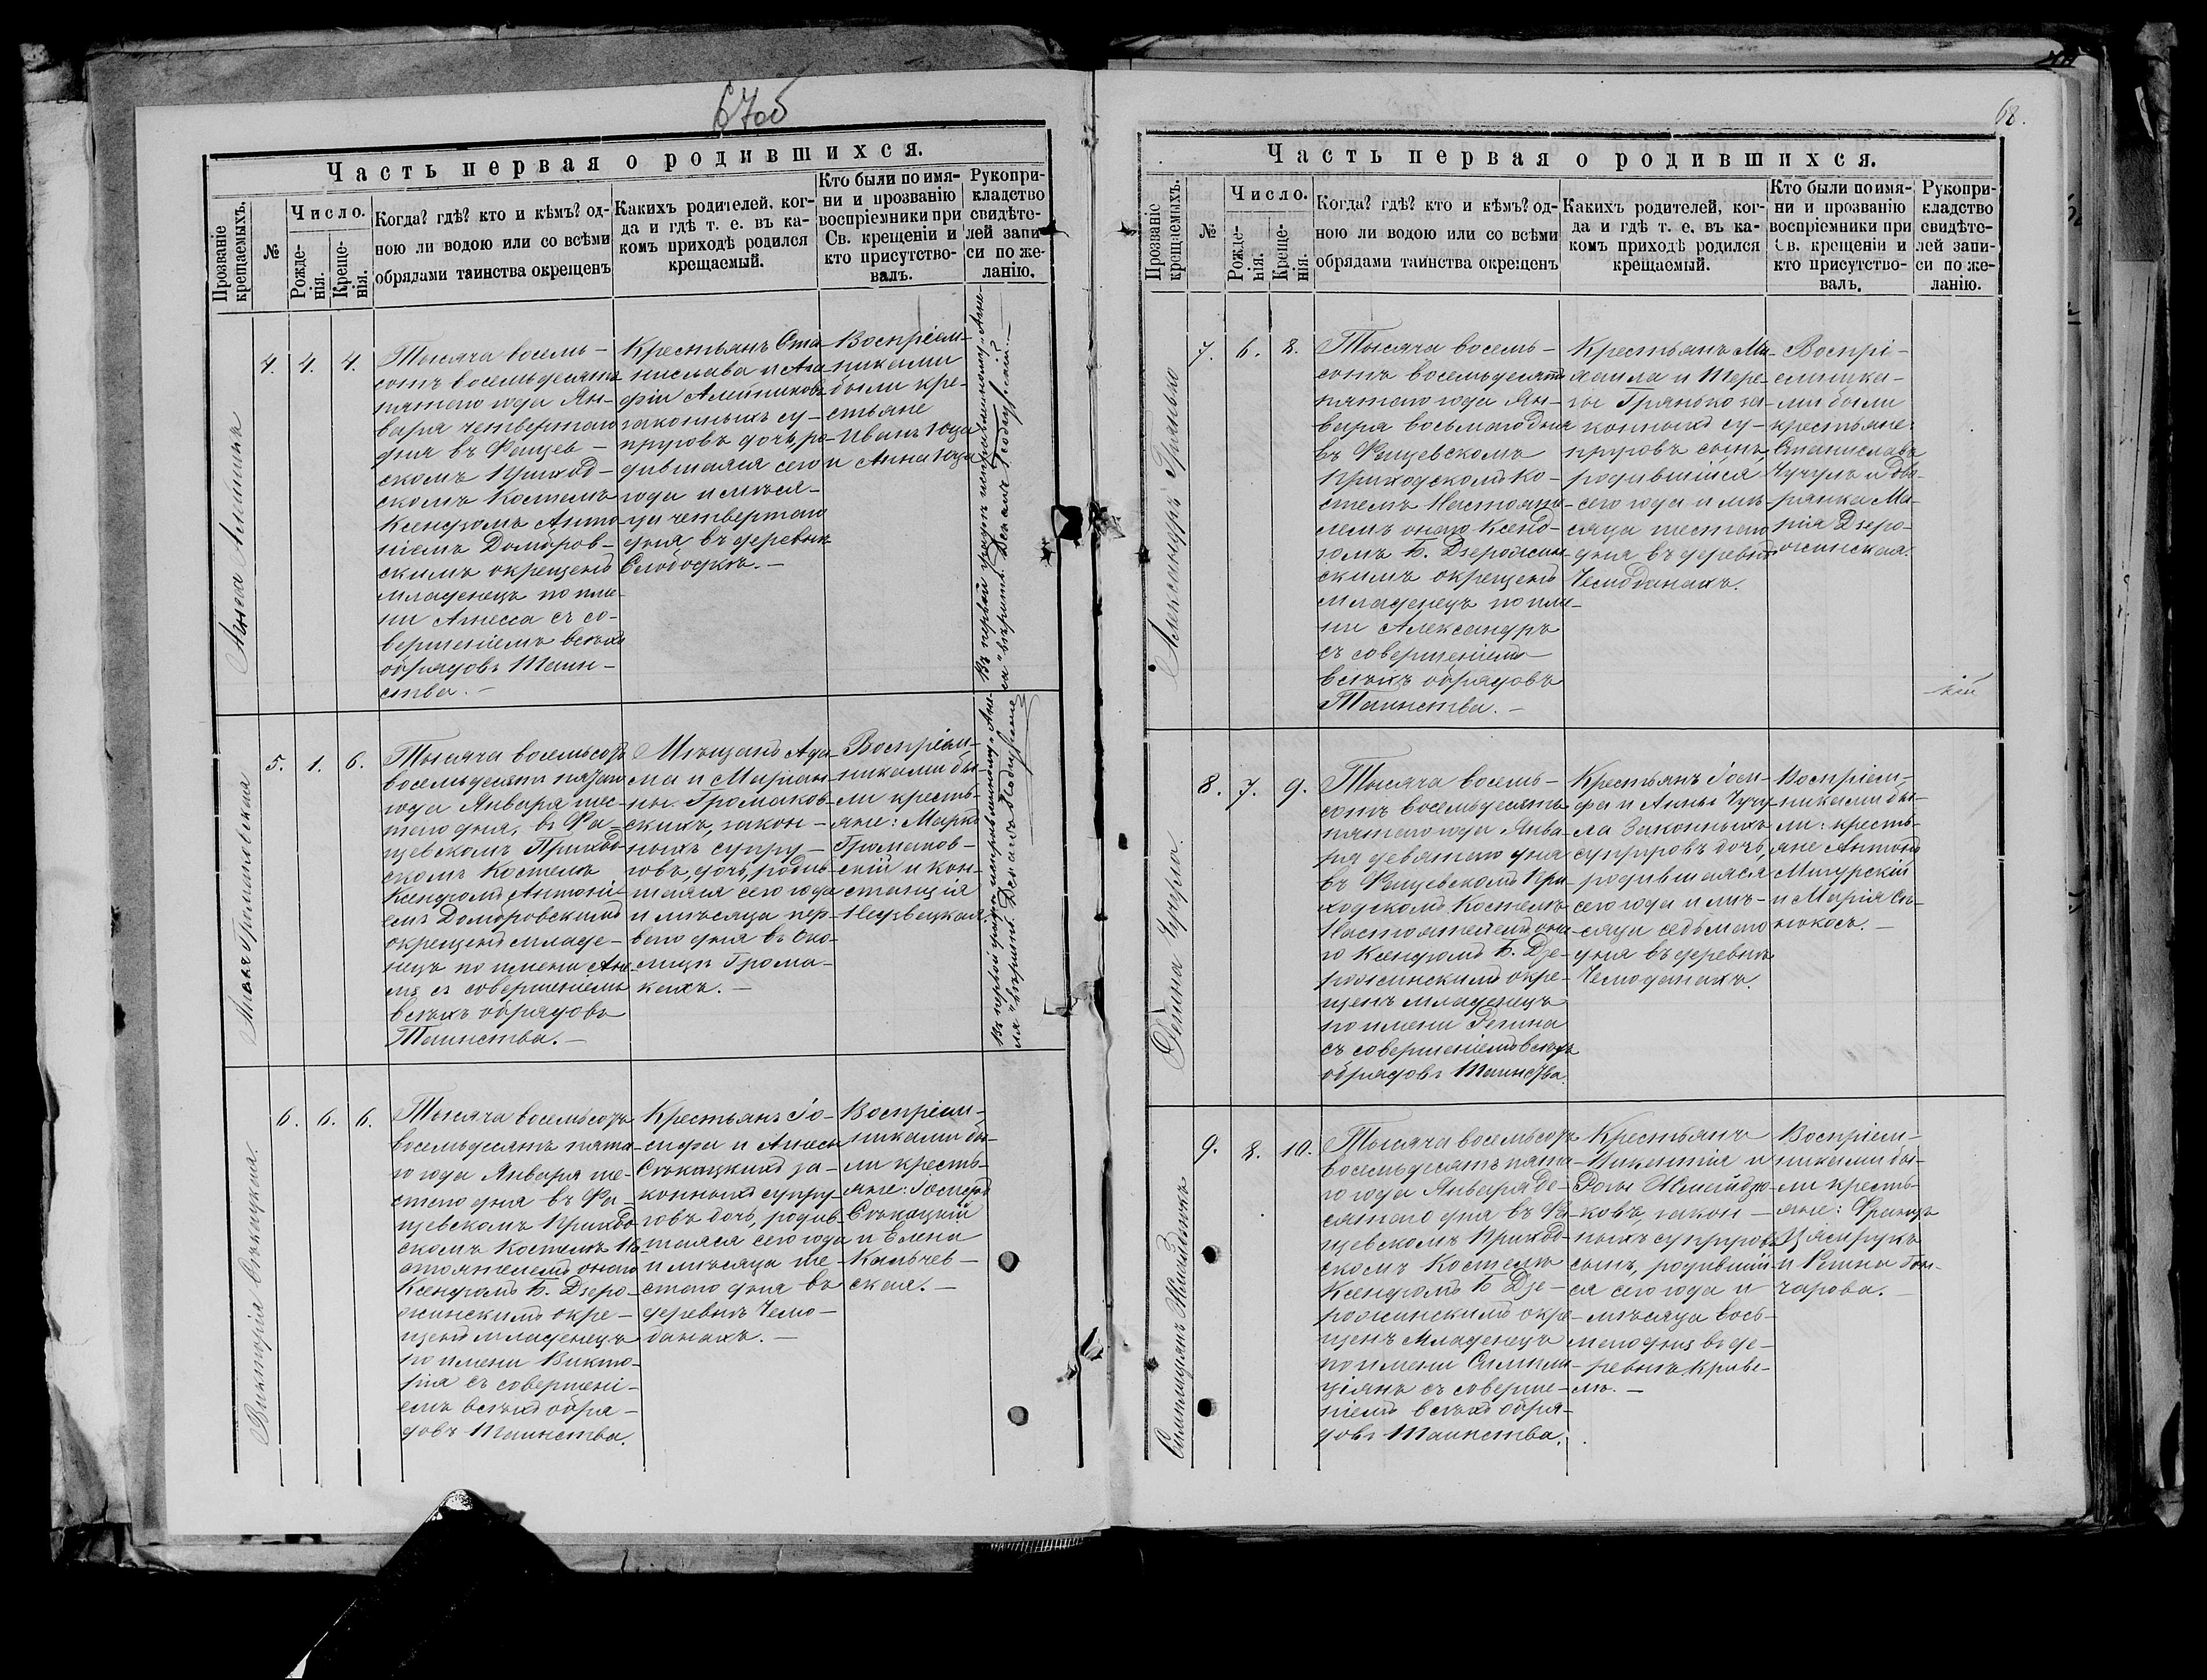 67об
Часть первая о родившихся.
Прозваніе крещаемыхъ.
№
Число.
Рожде-
нія.
Креще-
нія.
Когда? гдѣ? кто и кѣмъ? од-
ною ли водою или со всѣми
обрядами таинства окрещенъ
Какихъ родителей, ког-
да и гдѣ т. е. въ ка-
комъ приходѣ родился
крещаемый.
Кто были по имя-
ни и прозванію
воспріемники при
Св. крещеніи и
кто присутство-
валъ.
Рукопри-
кладство
свидѣте-
лей запи-
си по же-
ланію.
4.
4.
4.
Тысяча восемь-
сотъ восемьдесятъ
пятаго года Ян-
варя четвертаго
дня въ Фащев-
скомъ Приход-
скомъ Костелѣ
Ксендзомъ Анто-
ніемъ Домбров-
скимъ окрещенъ
младенецъ по име-
ни Агнеса съ со-
вершеніемъ всѣхъ
обрядовъ Таин-
ства.-
Крестьянъ Ста-
нислава и Ага-
фіи Алейниковъ
законныхъ су-
пруговъ дочь, ро-
дившаяся сего
года и мѣся-
ца четвертаго
дня въ деревнѣ
Слободкѣ.-
Воспріем-
никами
были кре-
стьяне
Иванъ Юца
и Анна Юца
5.
1.
6.
Анеля Громаковская
Тысяча восемьсотъ
восемьдесятъ пятаго
года Января шес-
таго дня, въ Фа-
щевскомъ Приход-
скомъ Костелѣ
Ксендзомъ Антоні-
емъ Домбровскимъ
окрещенъ младе-
нецъ по имени Ане-
ля съ совершеніемъ
всѣхъ обрядовъ
Таинства.-
Мѣщанъ Ада-
ма и Маріан-
ны Громаков-
скихъ, закон-
ныхъ супру-
говъ, дочь, родив-
шаяся сего года
и мѣсяца пер-
ваго дня въ око-
лицѣ Грома-
кахъ.-
Воспріем-
никами бы-
ли кресть-
яне: Марко
Громаков-
скій и Кон-
станція
Недзвецкая
6.
6.
6.
Викторія Сѣкацкая.
Тысяча восемьсотъ
восемьдесятъ пята-
го года Января ше-
стаго дня въ Фа-
щевскомъ Приход-
скомъ Костелѣ На-
стоятелемъ онаго
Ксендзомъ Б. Дзеро-
жинскимъ окре-
щенъ младенецъ
по имени Викто-
рія съ совершені-
емъ всѣхъ обря-
довъ Таинства.
Крестьянъ Іо-
сифа и Агнесы
Сѣкацкихъ за-
конныхъ супру-
говъ дочь, родив-
шаяся сего года
и мѣсяца ше-
стаго дня въ
деревнѣ Чемо-
данахъ.-
Воспріем-
никами бы-
ли кресть-
яне: Іосифъ
Сѣкацкій
и Елена
Кальчев-
ская.-
68.
Часть первая о родившихся.
Прозваніе крещаемыхъ.
№
Число.
Рожде-
нія.
Креще-
нія.
Когда? гдѣ? кто и кѣмъ? од-
ною ли водою или со всѣми
обрядами таинства окрещенъ
Какихъ родителей, ког-
да и гдѣ т. е. въ ка-
комъ приходѣ родился
крещаемый.
Кто были по имя-
ни и прозванію
воспріемники при
Св. крещеніи и
кто присутство-
валъ.
Рукопри-
кладство
свидѣте-
лей запи-
си по же-
ланію.
7.
6.
8.
Александръ Гранько
Тысяча восемь-
сотъ восемьдесятъ
пятаго года Ян-
варя восьмаго дня
въ Фащевскомъ
Приходскомъ Ко-
стелѣ Настояте-
лемъ онаго Ксенд-
зомъ Б. Дзерожин-
скимъ окрещенъ
младенецъ по име-
ни Александръ
съ совершеніемъ
всѣхъ обрядовъ
Таинства.-
Крестьянъ Ми-
хаила и Тере-
зы Гранько за-
конныхъ су-
пруговъ сынъ,
родившійся
сего года и мѣ-
сяца шестаго
дня въ деревнѣ
Чемоданахъ.
Воспрі-
емника-
ми были
крестьяне:
Станиславъ
Чучулъ и Дво-
рянка Ма-
рія Дзеро-
жинская.
8.
7.
9.
Регина Чучула.
Тысяча восемь-
сотъ восемьдесятъ
пятаго года Янва-
ря девятаго дня
въ Фащевскомъ При-
ходскомъ Костелѣ
Настоятелемъ она-
го Ксендзомъ Б. Дзе-
рожинскимъ окре-
щенъ младенецъ
по имени Регина
съ совершеніемъ всѣхъ
обрядовъ Таинства.
Крестьянъ Іоси-
фа и Анны Чучу-
ла Законныхъ
супруговъ дочь,
родившаяся
сего года и мѣ-
сяца седьмаго
дня въ деревнѣ
Чемоданахъ.
Воспріем-
никами бы-
ли: кресть-
яне Антонъ
Мигурскій
и Марія Сѣ-
нюкось.-
9.
8.
10.
Тысяча восемьсотъ
восемьдесятъ пята-
го года Января де-
сятаго дня въ Фа-
щевскомъ Приход-
скомъ Костелѣ
Ксендзомъ Б. Дзе-
рожинскимъ окре-
щенъ Младенецъ
по имени Симпли-
ціянъ съ соверше-
ніемъ всѣхъ обря-
довъ Таинства.
Крестьянъ
Викентія и
Розы Жмайдзю-
ковъ, закон-
ныхъ супруговъ
сынъ, родившій-
ся сего года и
мѣсяца вось-
маго дня въ де-
ревнѣ Криве-
лѣ.-
Воспріем-
никами бы-
ли кресть-
яне: Францъ
и Регина Гон-
чарова.-